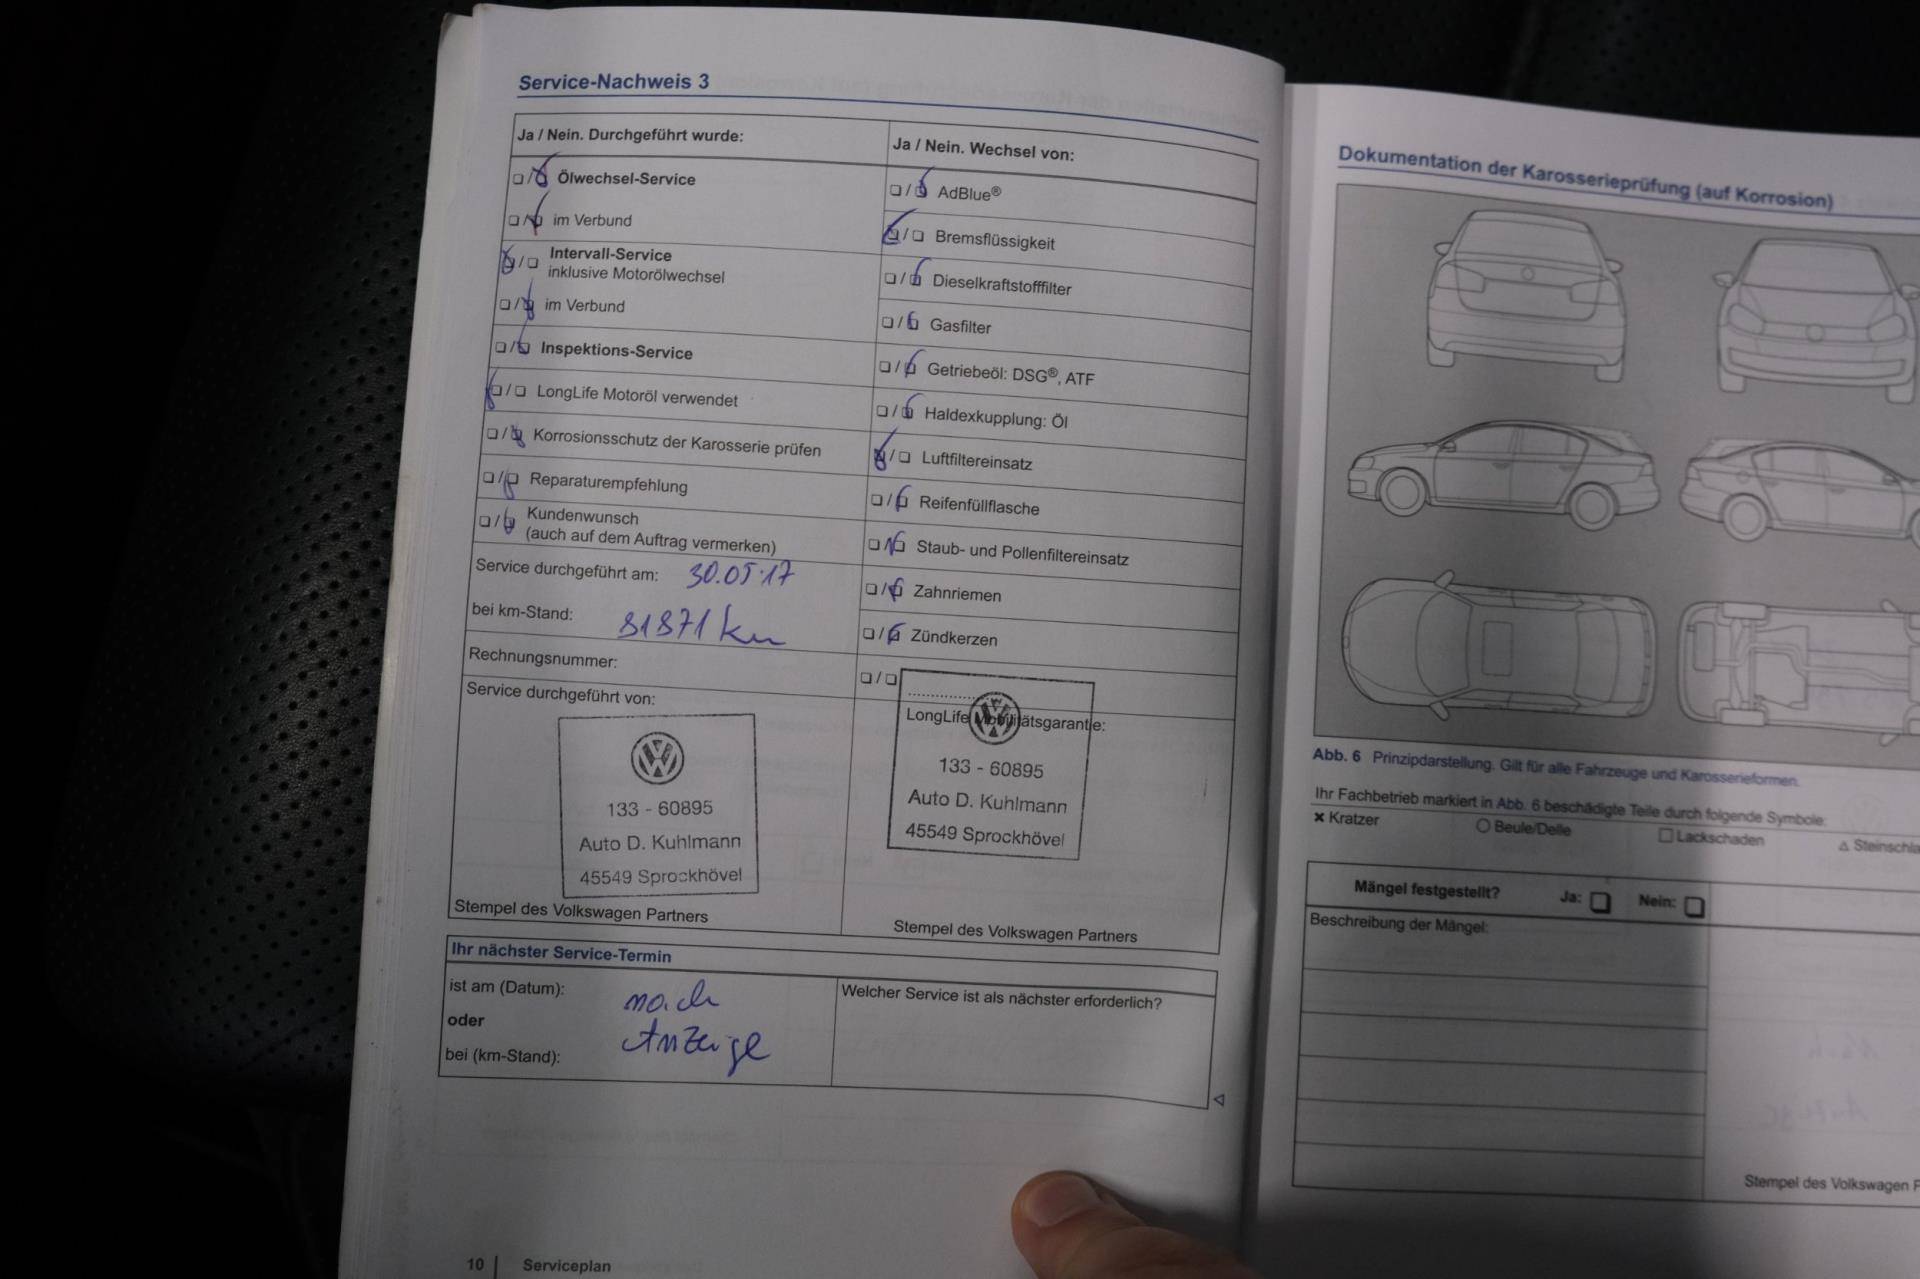 Service-Nachweis 3
Ja / Nein. Durchgeführt wurde:
❏ / ❏ Ölwechsel-Service
❏ / ❏ im Verbund
❏ / ❏ Intervall-Service
inklusive Motorölwechsel
❏ / ❏ im Verbund
❏ / ❏ Inspektions-Service
❏ / ❏ LongLife Motoröl verwendet
❏ / ❏ Korrosionsschutz der Karosserie prüfen
❏ / ❏ Reparaturempfehlung
❏ / ❏ Kundenwunsch
(auch auf dem Auftrag vermerken)
Service durchgeführt am: 30.05.17
bei km-Stand: 81871 km
Rechnungsnummer:
Service durchgeführt von:
133 - 60895
Auto D. Kuhlmann
45549 Sprockhövel
Stempel des Volkswagen Partners
Ja / Nein. Wechsel von:
❏ / ❏ AdBlue®
❏ / ❏ Bremsflüssigkeit
❏ / ❏ Dieselkraftstofffilter
❏ / ❏ Gasfilter
❏ / ❏ Getriebeöl: DSG®, ATF
❏ / ❏ Haldexkupplung: Öl
❏ / ❏ Luftfiltereinsatz
❏ / ❏ Reifenfüllflasche
❏ / ❏ Staub- und Pollenfiltereinsatz
❏ / ❏ Zahnriemen
❏ / ❏ Zündkerzen
❏ / ❏ ................
LongLife Mobilitätsgarantie:
133 - 60895
Auto D. Kuhlmann
45549 Sprockhövel
Stempel des Volkswagen Partners
Ihr nächster Service-Termin
ist am (Datum): nach
oder Anzeige
bei (km-Stand):
Welcher Service ist als nächster erforderlich?
10 Serviceplan
Dokumentation der Karosserieprüfung (auf Korrosion)
Abb. 6 Prinzipdarstellung. Gilt für alle Fahrzeuge und Karosserieformen.
Ihr Fachbetrieb markiert in Abb. 6 beschädigte Teile durch folgende Symbole:
✖ Kratzer ○ Beule/Delle □ Lackschaden △ Steinschla
Mängel festgestellt? Ja: ❏ Nein: ❏
Beschreibung der Mängel:
Stempel des Volkswagen P